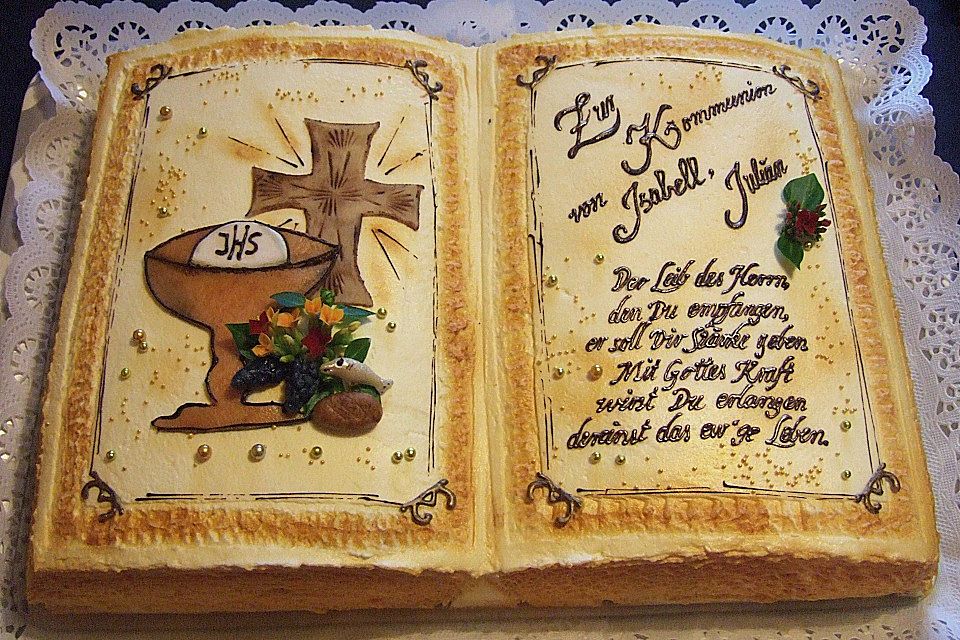 JHS
Zur Kommunion
von Isabell, Julian
Der Leib des Herrn,
den Du empfangen,
er soll Dir Stärke geben
Mit Gottes Kraft
wirst Du erlangen
dereinst das ew'ge Leben.